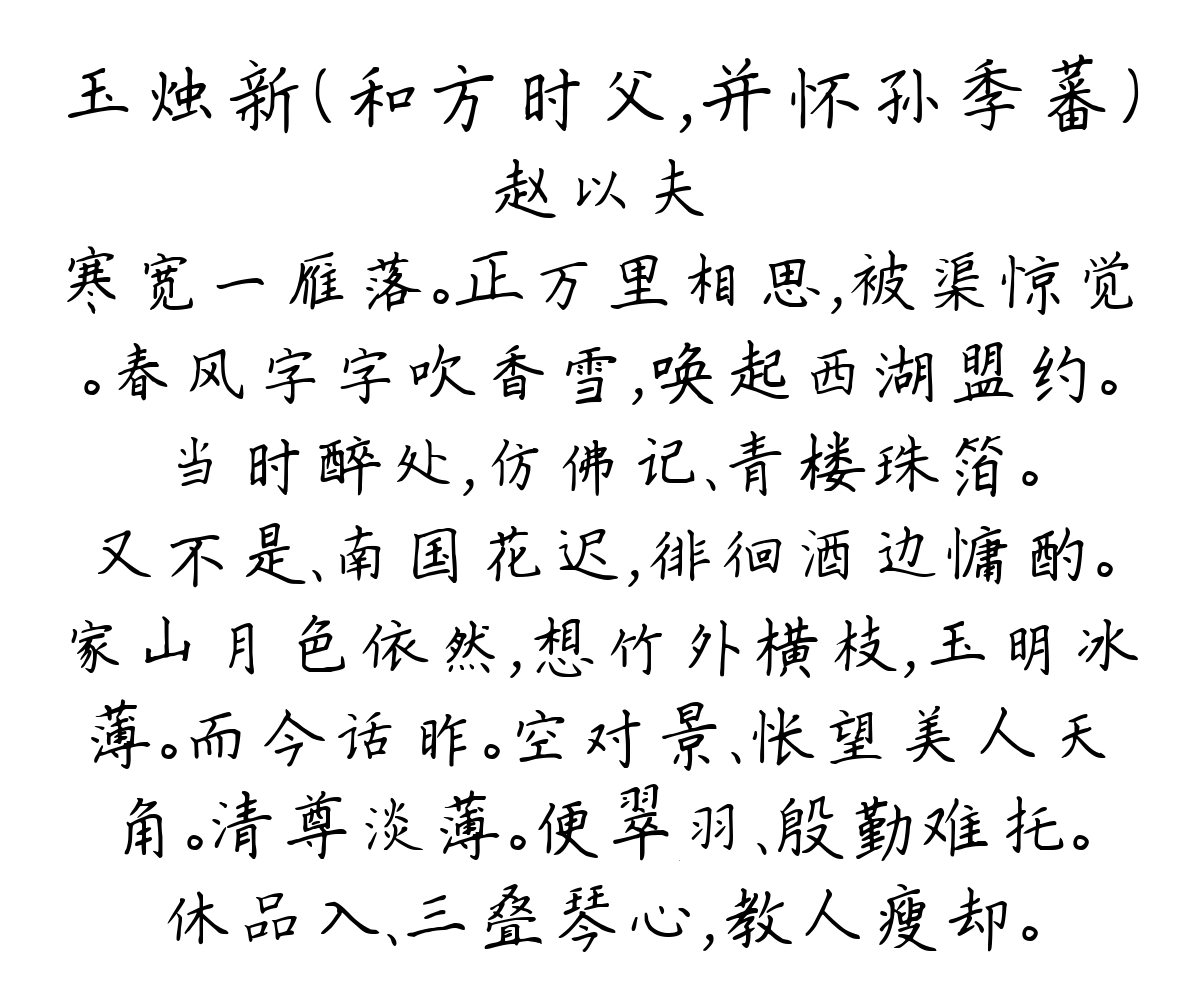 玉烛新(和方时父,并怀孙季蕃)
赵以夫
寒宽一雁落。正万里相思,被渠惊觉
。春风字字吹香雪,唤起西湖盟约。
当时醉处,仿佛记、青楼珠箔。
又不是、南国花迟,徘徊酒边慵酌。
家山月色依然,想竹外横枝,玉明冰
薄。而今话昨。空对景、怅望美人天
角。清尊淡薄。便翠羽、殷勤难托。
休品入、三叠琴心,教人瘦却。